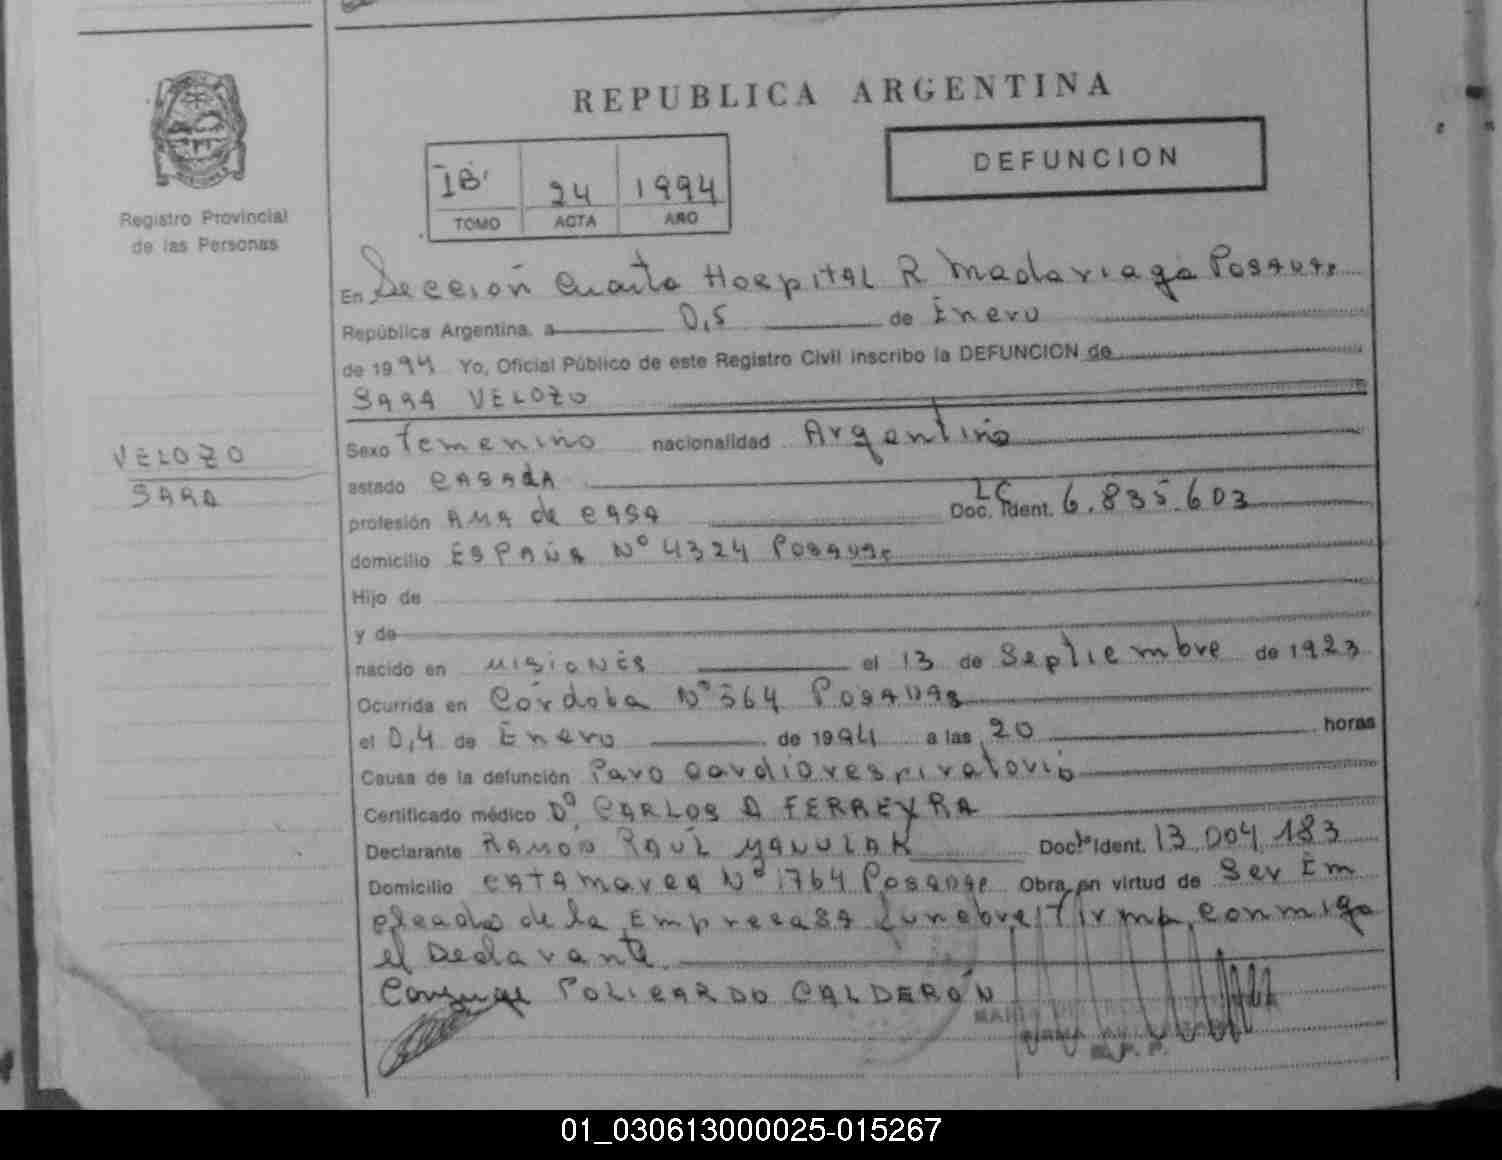 REPUBLICA ARGENTINA
DEFUNCION
1B' 24 1994
TOMO ACTA AÑO
Registro Provincial
de las Personas
En Sección Cuarta Hospital R Madariaga Posadas
República Argentina, a 0,5 de Enero
de 1994 Yo, Oficial Público de este Registro Civil inscribo la DEFUNCION de
SARA VELOZO
VELOZO
SARA
Sexo Femenino nacionalidad Argentino
estado CASADA
profesión AMA de CASA Doc. Ident. LC 6.835.603
domicilio ESPAÑA Nº 4324 Posadas
Hijo de
y de
nacido en MISIONES el 13 de Septiembre de 1923
Ocurrida en Córdoba Nº 364 Posadas
el 0,4 de Enero de 1994 a las 20 horas
Causa de la defunción Paro cardiorespiratorio
Certificado médico Dº CARLOS A FERREYRA
Declarante RAMÓN RAÚL YANULAK Doc. Ident. 13.004.183
Domicilio CATAMARCA Nº 1764 Posadas Obra en virtud de Ser Em
pleado de la Empresa Funebre, Firma Conmigo
el Declarante.
Conyuge POLICARDO CALDERÓN
01_030613000025-015267